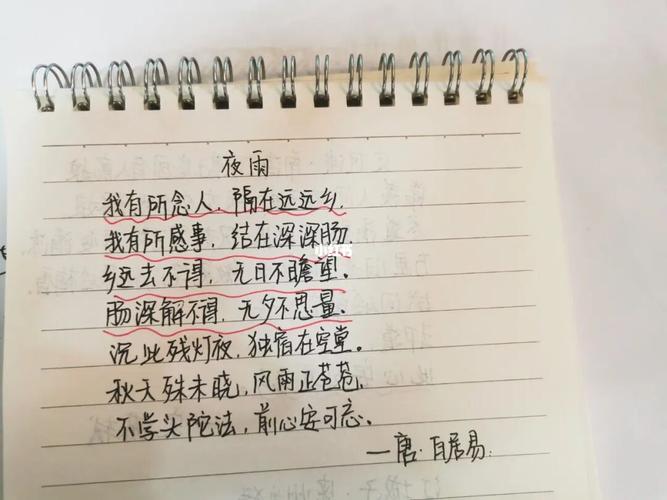 夜雨
我有所念人，隔在远远乡.
我有所感事，结在深深肠
乡远去不得，无日不瞻望.
肠深解不得，无夕不思量.
况此残灯夜，独宿在空堂.
秋天殊未晓，风雨正苍苍.
不学头陀法，前心安可忘.
—唐·白居易.
小红书